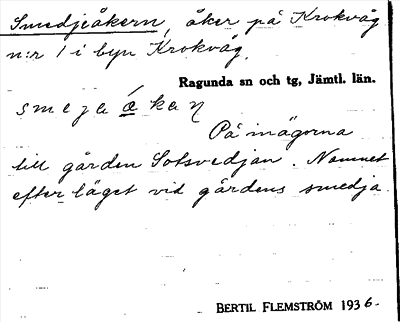 Smedjeåkern, åker på Krokvåg
n:r 1 i byn Krokvåg.
Ragunda sn och tg, Jämtl. län.
På mägorna
till gården Sotsvedjan. Namnet
efter läget vid gårdens smedja.
BERTIL FLEMSTRÖM 1936.